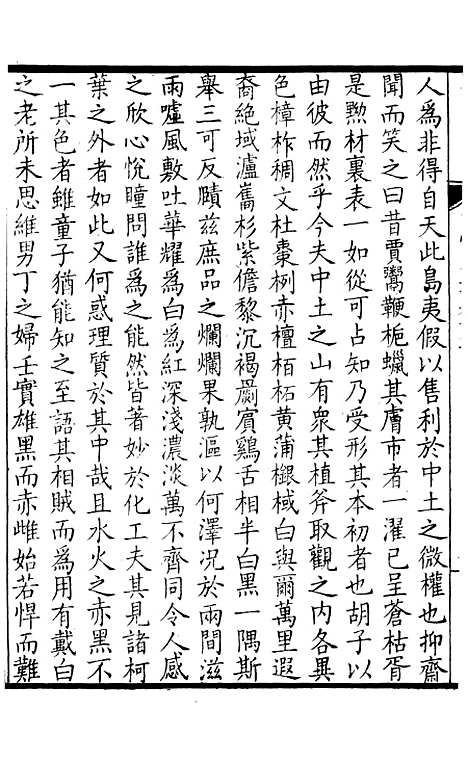 人爲非得自天此島夷假以售利於中土之微權也抑齋
聞而笑之曰昔賈鬻鞭梔蠟其膚市者一濯已呈蒼枯胥
是黙材裏表一如從可占知乃受形其本初者也胡子以
由彼而然乎今夫中土之山有衆其植斧取觀之内各異
色樟柞稠文杜棗栵赤檀栢柘黄蒲棂棫白與爾萬里遐
裔絶域瀘巂杉紫儋黎沉褐罽賓鷄舌相半白黑一隅斯
舉三可反賾兹庶品之爛爛果孰漚以何澤况於兩間滋
雨嘘風敷吐華耀爲白爲紅深淺濃淡萬不齊同令人感
之欣心悅瞳問誰爲之能然皆著妙於化工夫其見諸柯
葉之外者如此又何惑理質於其中哉且水火之赤黑不
一其色者雖童子猶能知之至語其相賊而爲用有戴白
之老所未思維男丁之婦壬實雄黑而赤雌始若悍而難